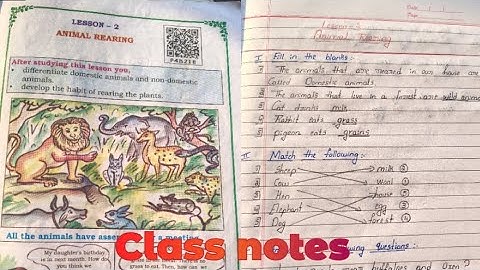 LESSON - 2
ANIMAL REARING
After studying this lesson you,
• differentiate domestic animals and non-domestic
animals.
• develop the habit of rearing the plants.
All the animals have
a meeting
My daughter's birthday
is in next month. How do
you think we
grass to eat. Then, how can we
Lesson-2
Animal Rearing
Date
I Fill in the blanks:
The animals that are reared in our house are
called Domestic animals.
The animals that live in a forest are wild
Cat drinks milk
Rabbit eats grass
pigeon eats grains
II Match the following:
1) Sheep milk 2
2) Cow wool 1
3) Hen house 5
4) Elephant Egg 3
5) Dog forest 4
questions:
Class notes